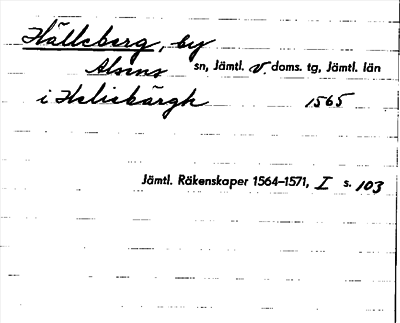 Hälleberg, by
Alsens sn, Jämtl. v. doms. tg, Jämtl. län
i Helisbärgh 1565
Jämtl. Räkenskaper 1564–1571, I s. 103